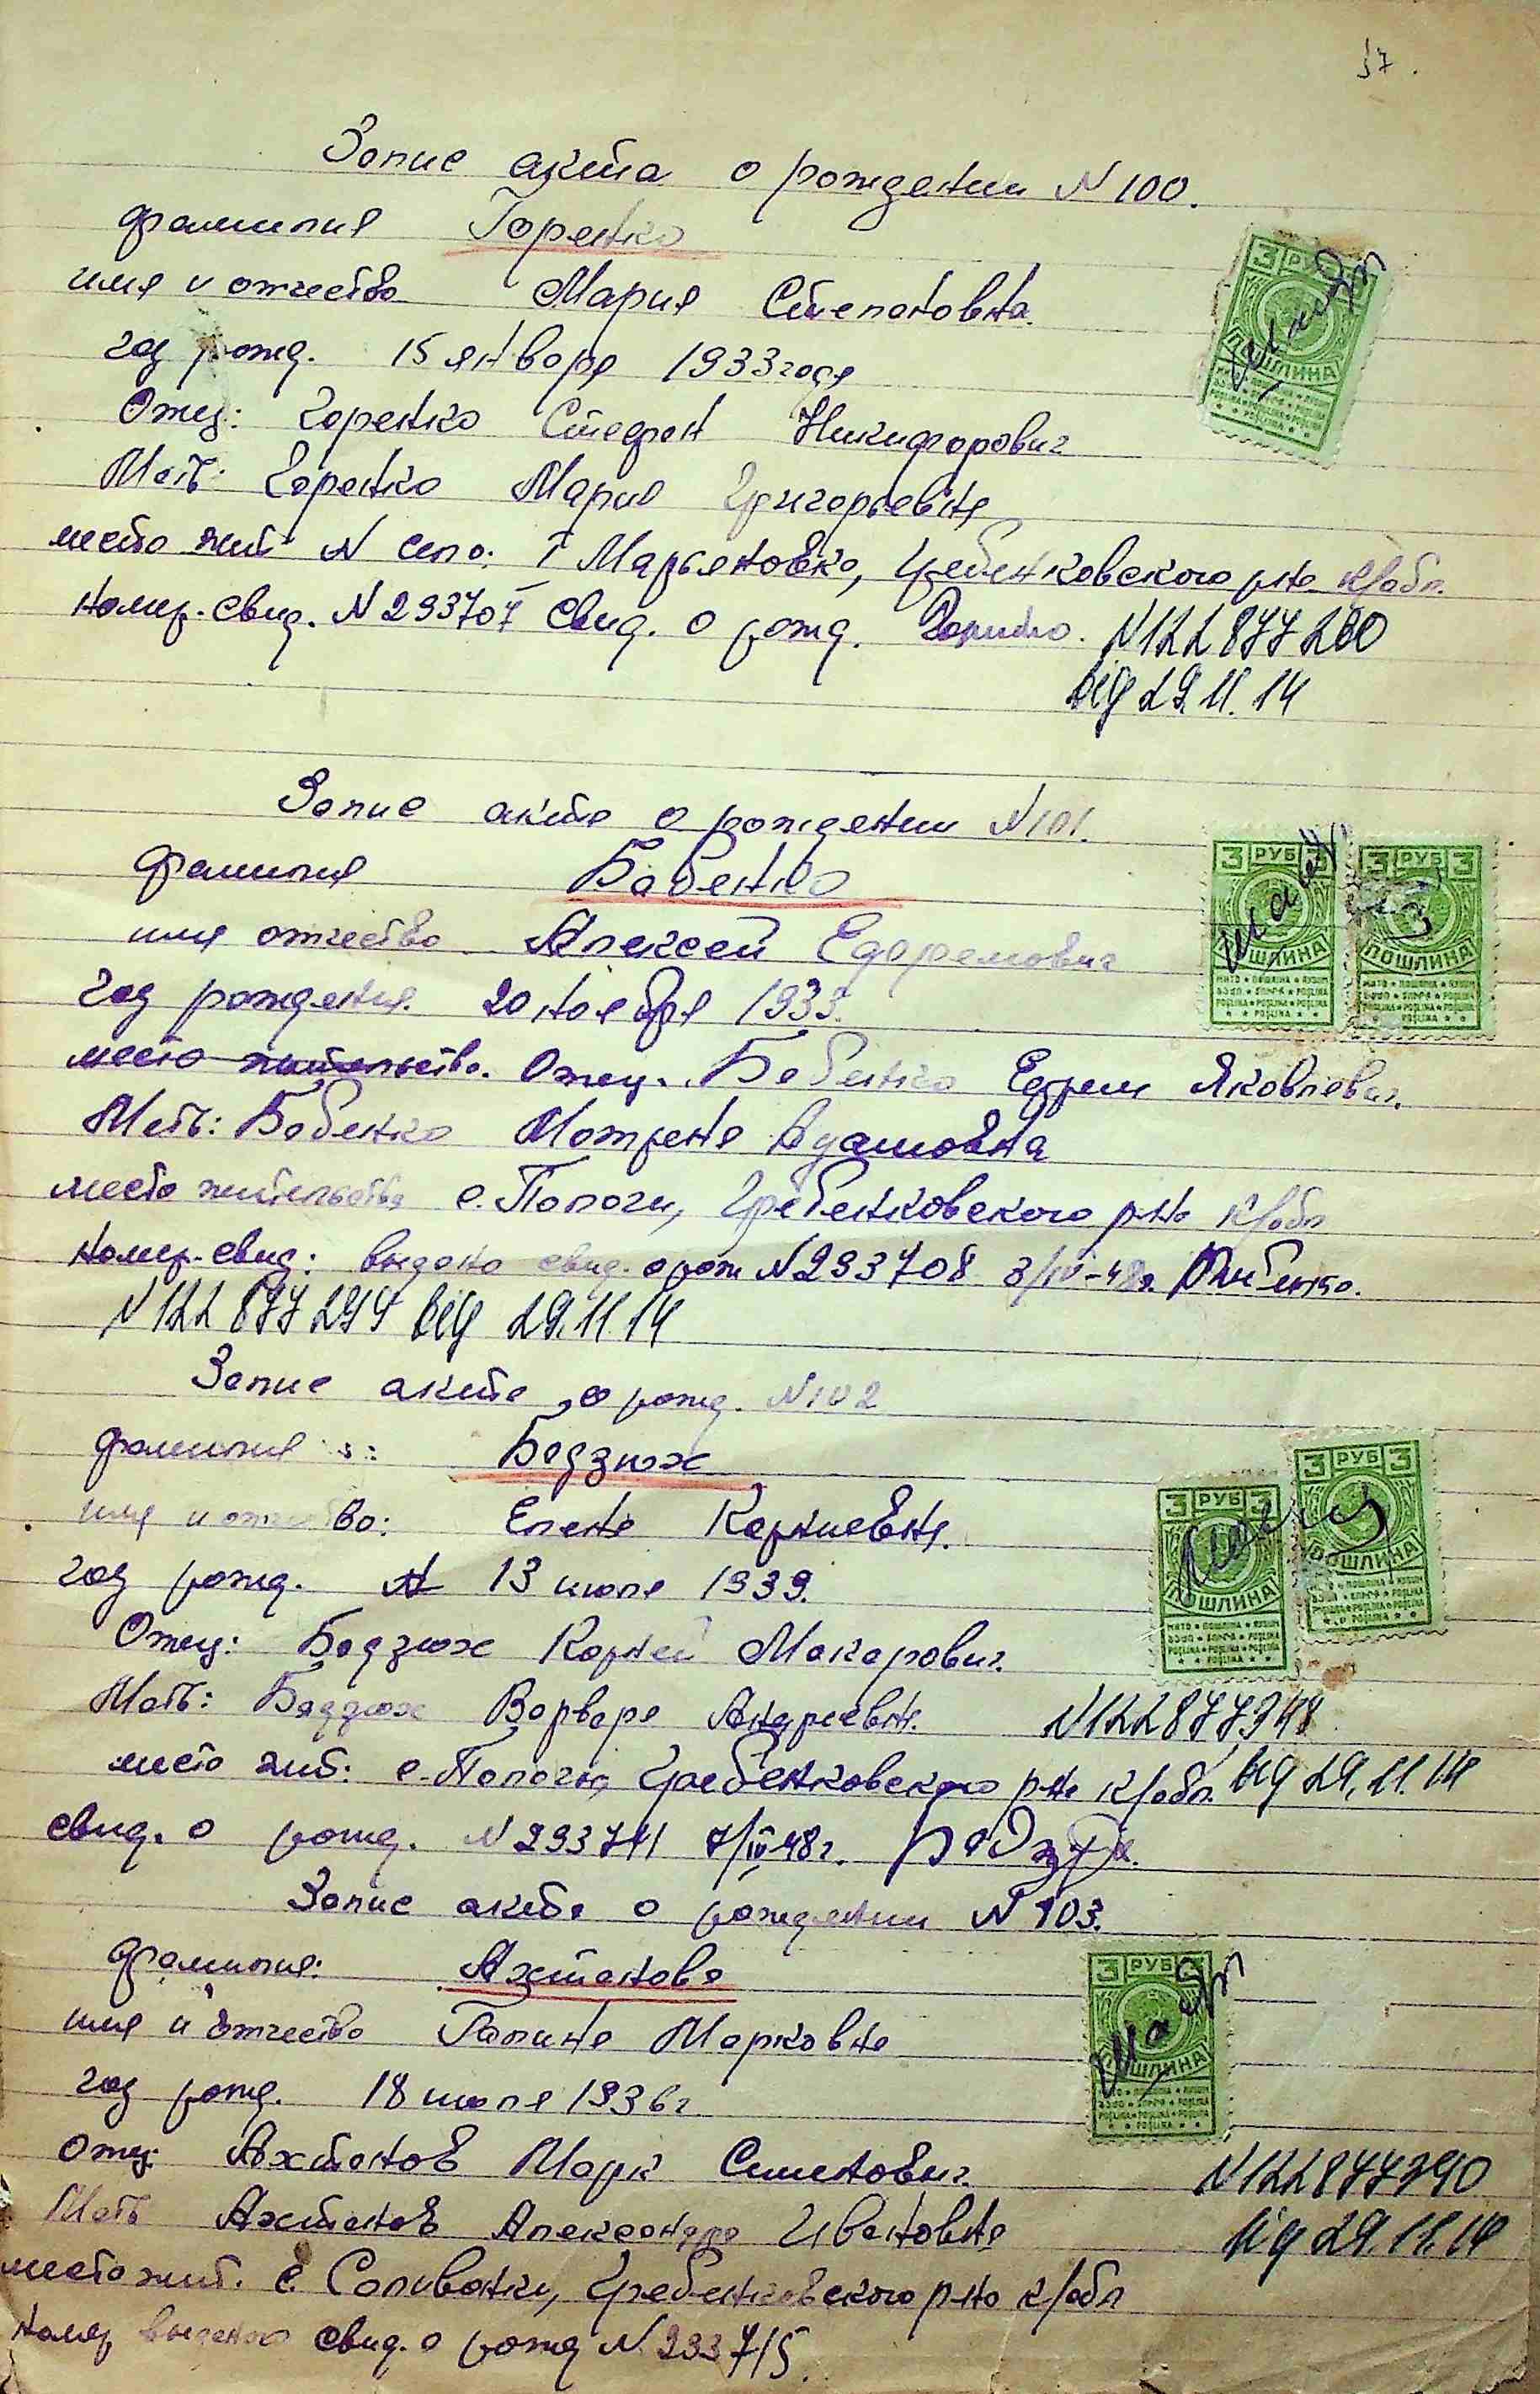 37.
Запис акта о рождении N 100.
фамилия Горенко
имя и отчество Мария Степановна.
год рожд. 15 января 1933 года
Отец: Горенко Стефан Никифорович
Мать: Горенко Мария Григорьевна
место жит N село: I Марьяновка, Гребенковского р-на к/обл.
номер. свид. N 293707 свид. о рожд. N 122 877 280
від 29.11.14
Запис акта о рождении N 101.
фамилия Бабенко
имя отчество Алексей Ефремович
год рождения. 20 ноября 1933.
место жительство. Отец. Бабенко Ефрем Яковлевич.
Мать: Бабенко Мотрена Адамовна
место жительства с. Пологи, Гребенковского р-на к/обл
номер. свид: выдано свид. о рож N 293708 3/IV-48г.
N 122 877 294 від 29.11.14
Запис акта о рожд. N 102
фамилия: Бадзюх
имя и отчество: Елена Карниевна.
год рожд. 13 июля 1939.
Отец: Бадзюх Корней Макарович.
Мать: Бадзюх Варвара Андреевна. N 122877348
место жит: с. Пологи, Гребенковского р-на к/обл. від 29.11.14
свид. о рожд. N 293711 7/IV-48г.
Запис акта о рождении N 103.
фамилия: Ахтанова
имя и отчество Галина Марковна
год рожд. 18 июля 1936г
отец Ахтанов Марк Семенович. N 122877390
Мать Ахтанов Александра Ивановна від 29.11.14
место жит. с. Соливонки, Гребенковского р-на к/обл
номер выданого свид. о рожд N 293715.
3 РУБ 3
ПОШЛИНА
3 РУБ 3
ПОШЛИНА
3 РУБ 3
ПОШЛИНА
3 РУБ 3
ПОШЛИНА
3 РУБ 3
ПОШЛИНА
3 РУБ 3
ПОШЛИНА